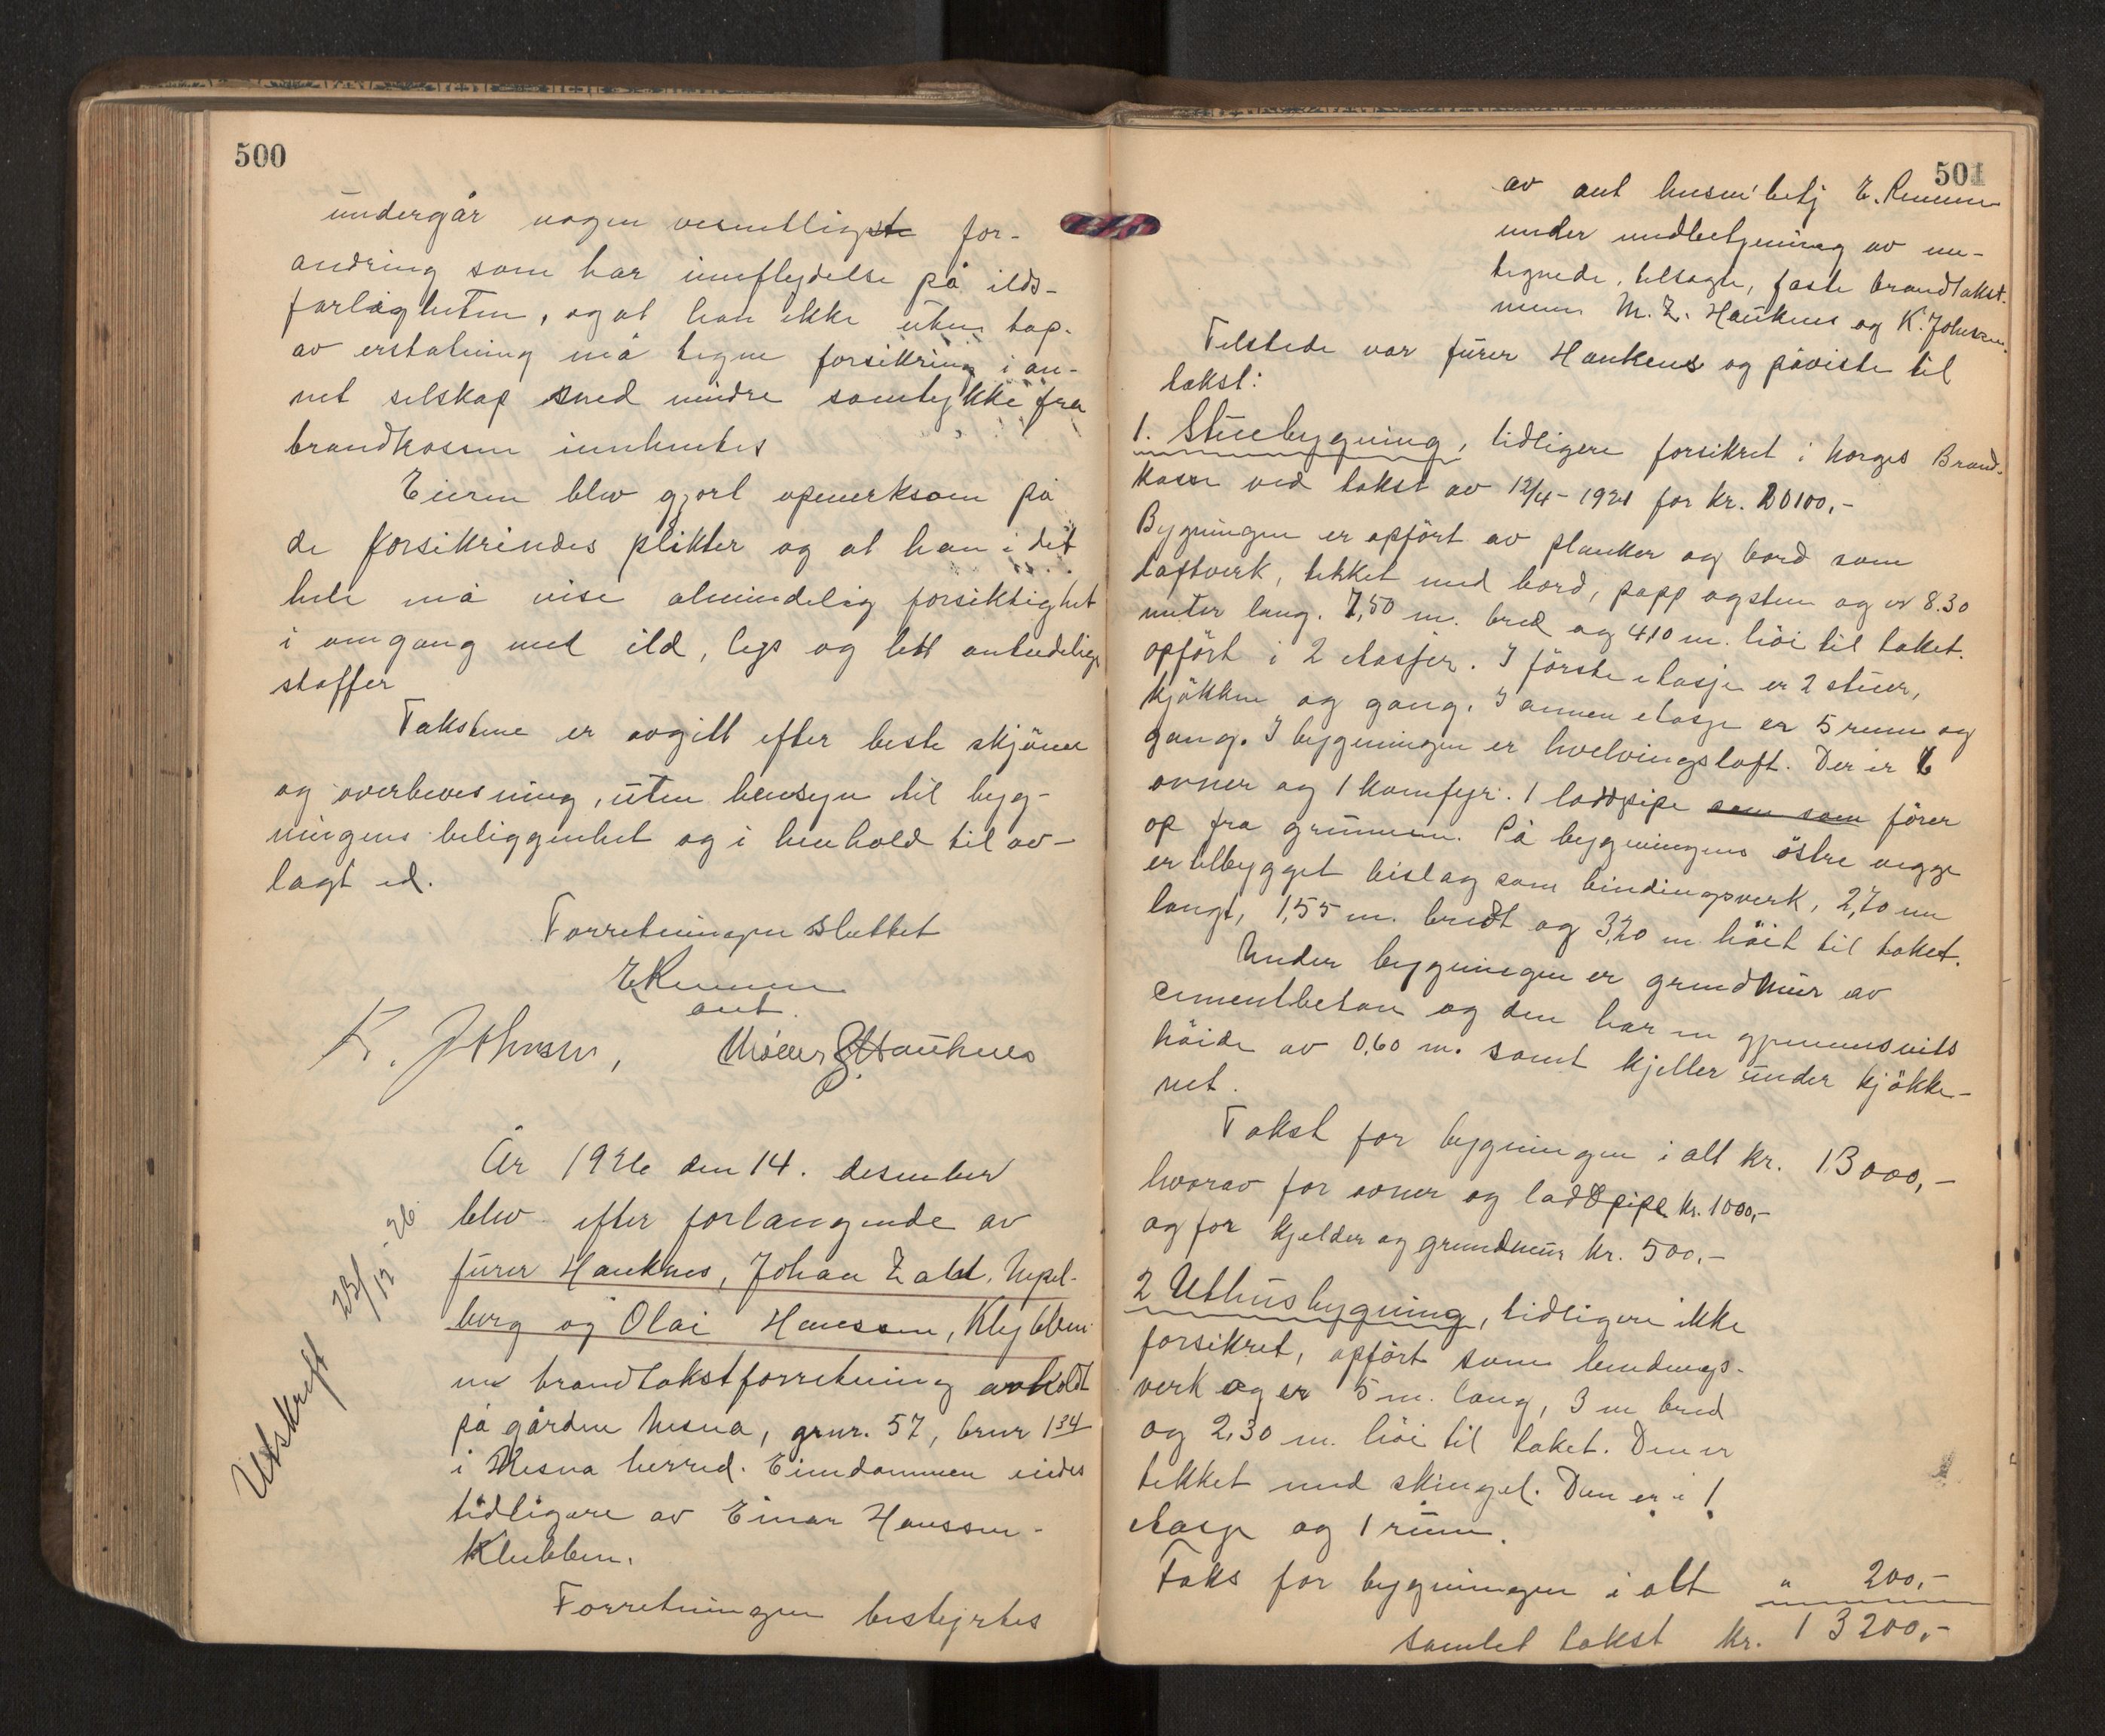 500
undergår nogen vesentligste for-
andring som har innflydelse på ilds-
farligheten, og at han ikke uten tap
av erstatning må tegne forsikring i an-
net selskap med mindre samtykke fra
brandkassen innhentes
Eieren blev gjort opmerksom på
de forsikrendes plikter og at han i det
hele må vise almindelig forsiktighet
i omgang med ild, lys og lett antendelige
stoffer
Takstene er avgitt efter beste skjönn
og overbevisning, uten hensyn til byg-
ningens beliggenhet og i henhold til av-
lagt ed.
Forretningen sluttet
E Remmen
ant.
K. Johnsen, Hauknes
År 1926 den 14. desember
blev efter forlangende av
furer Hauknes, Johan Zahl, Nesel-
berg og Olai Hanssen, Klubben
en brandtakstforretning avholdt
på gården Nesna, grnr. 57, brnr 134
i Nesna herred. Eiendommen eiedes
tidligere av Einar Hanssen
Klubben.
Forretningen bestyrtes
Utskrift 23/12-26.
501
av ant husm' betj E. Remmen
under undbetjening av un-
tegnede, tilsagte, faste brandtakst-
menn M. Z. Hauknes og K. Johnsen.
Tilstede var furer Hauknes og påviste til
takst:
1. Stuebygning, tidligere forsikret i Norges Brand-
kasse ved takst av 12/4-1921 for kr. 20100,-
Bygningen er opfört av planker og bord som
laftverk, tekket med bord, papp og sten og er 8.30
meter lang. 7,50 m. bred og 4.10 m. höi til taket.
opfört i 2 etasjer. I förste etasje er 2 stuer,
kjökken og gang. I annen etasje er 5 rum og
gang. I bygningen er hvelvingsloft. Der er 6
ovner og 1 komfyr. 1 loddpipe som som förer
op fra grunnen. På bygningens östre vegge
er tilbygget bislag som bindingsverk, 2,70 m
langt, 1,55 m. bredt og 3,20 m höit til taket.
Under bygningen er grundmur av
cementbeton og den har en gjennemsnits
höide av 0,60 m. samt kjeller under kjökke-
net.
Takst for bygningen i alt kr. 13000,-
hvorav for ovner og loddpipe kr. 1000,-
og for kjelder og grundmur kr. 500,-
2 Uthusbygning, tidligere ikke
forsikret, opfört som bindings-
verk og er 5 m. lang, 3 m bred
og 2,30 m. höi til taket. Den er
tekket med skingel. Den er i 1
etasje og 1 rum.
Taks for bygningen i alt " 200,-
samlet takst kr. 13200,-